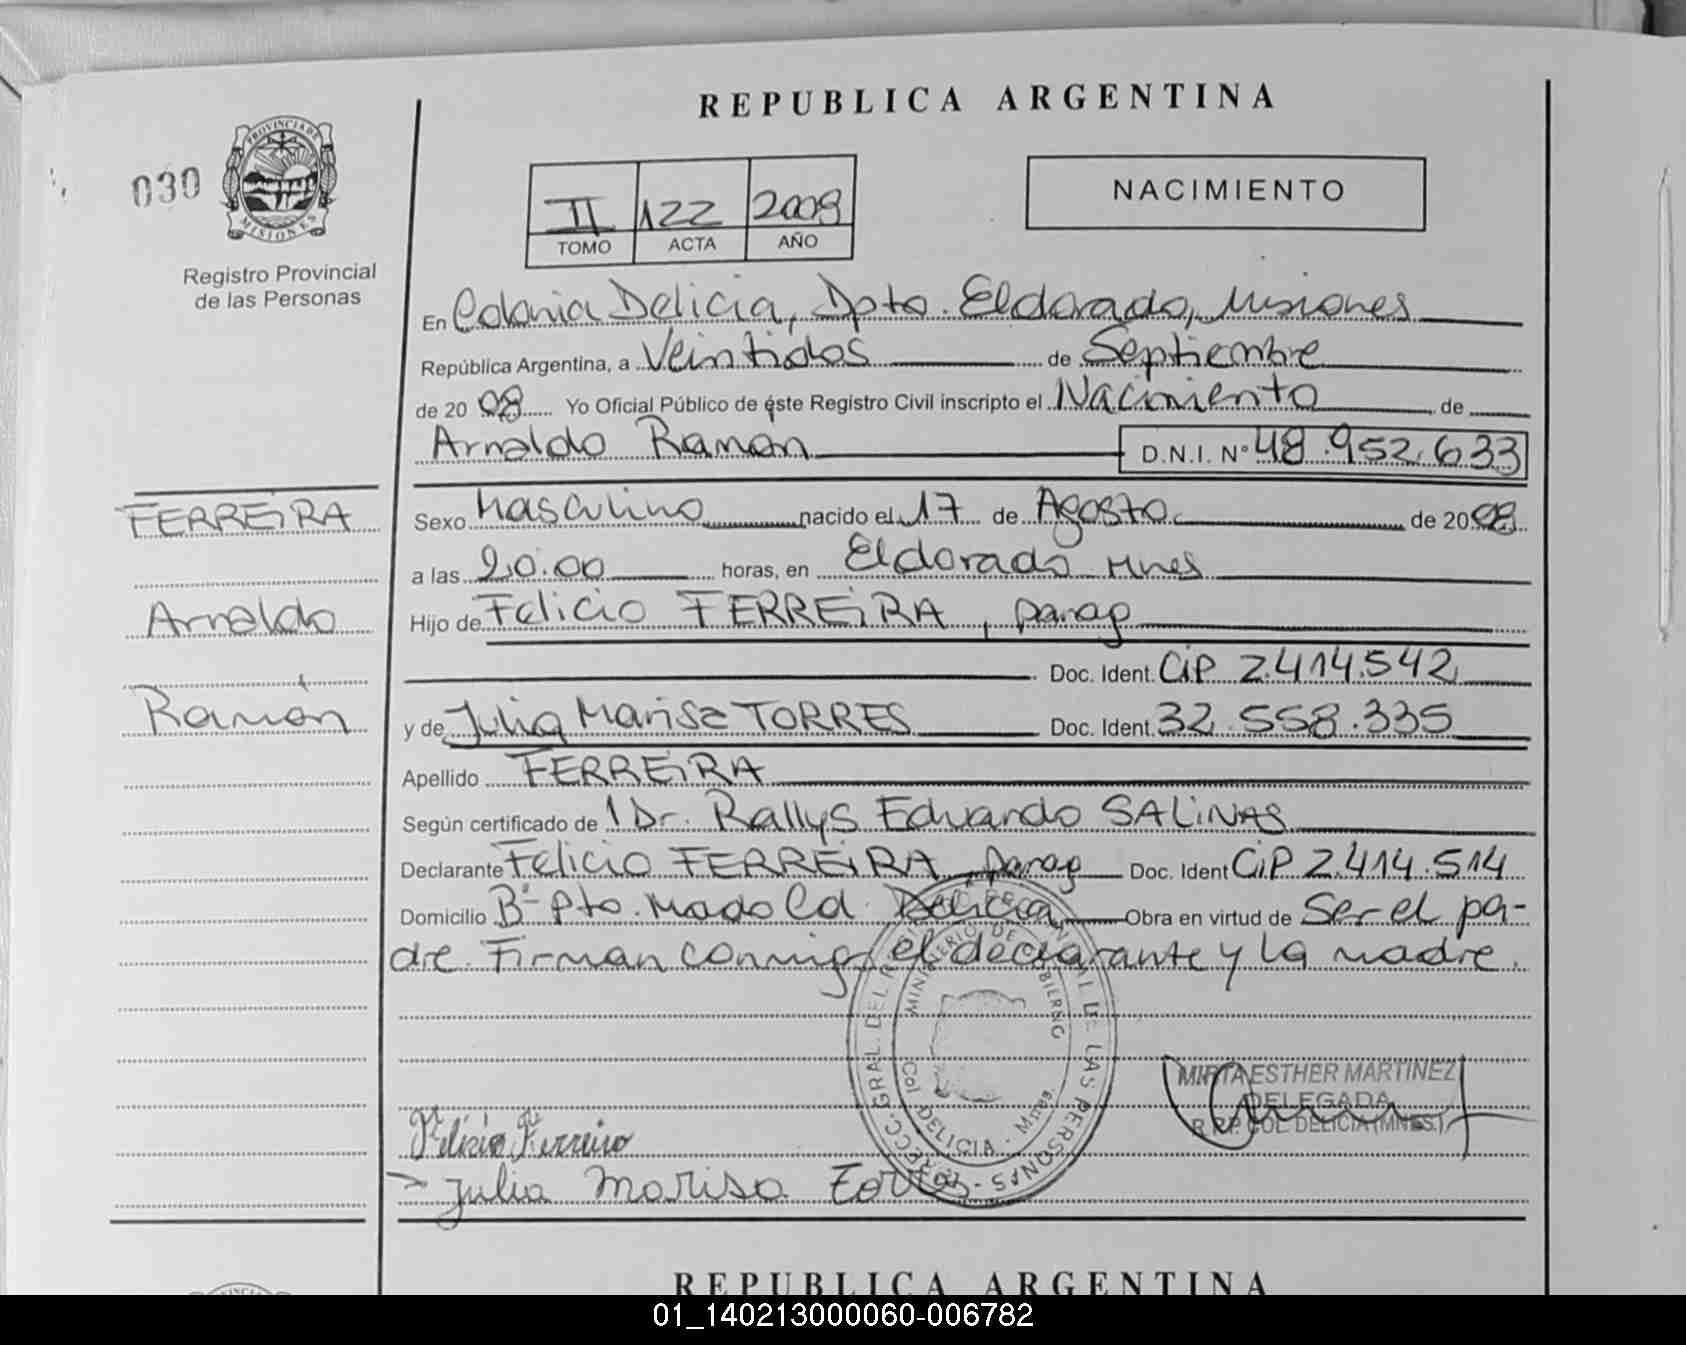 REPUBLICA ARGENTINA
030
PROVINCIA DE
MISIONES
Registro Provincial
de las Personas
II 122 2008
TOMO ACTA AÑO
NACIMIENTO
En Colonia Delicia, Dpto. Eldorado, Misiones
República Argentina, a Veintidos de Septiembre
de 2008 Yo Oficial Público de éste Registro Civil inscripto el Nacimiento de
Arnaldo Ramon D.N.I. N° 48.952.633
FERREiRA
Arnaldo
Ramón
Sexo Masculino nacido el 17 de Agosto de 2008
a las 20:00 horas, en Eldorado Mnes
Hijo de Felicio FERREiRA, parag
Doc. Ident. CiP 2.414.542
y de Julia Marisa TORRES Doc. Ident. 32.558.335
Apellido FERREiRA
Según certificado de 1 Dr. Rallys Eduardo SALiNAS
Declarante Felicio FERREiRA, parag Doc. Ident CiP 2.414.514
Domicilio B° Pto. Mado Cd. Delicia Obra en virtud de Ser el pa-
dre. Firman conmigo el declarante y la madre.
MINISTERIO DE GOBIERNO
Col DELICIA - Mnes.
DE LAS PERSONAS
MIRTA ESTHER MARTINEZ
DELEGADA
R.P.P. COL DELICIA (MNES.)
Felicio Ferreira
Julia Marisa Torres
REPUBLICA ARGENTINA
01_140213000060-006782